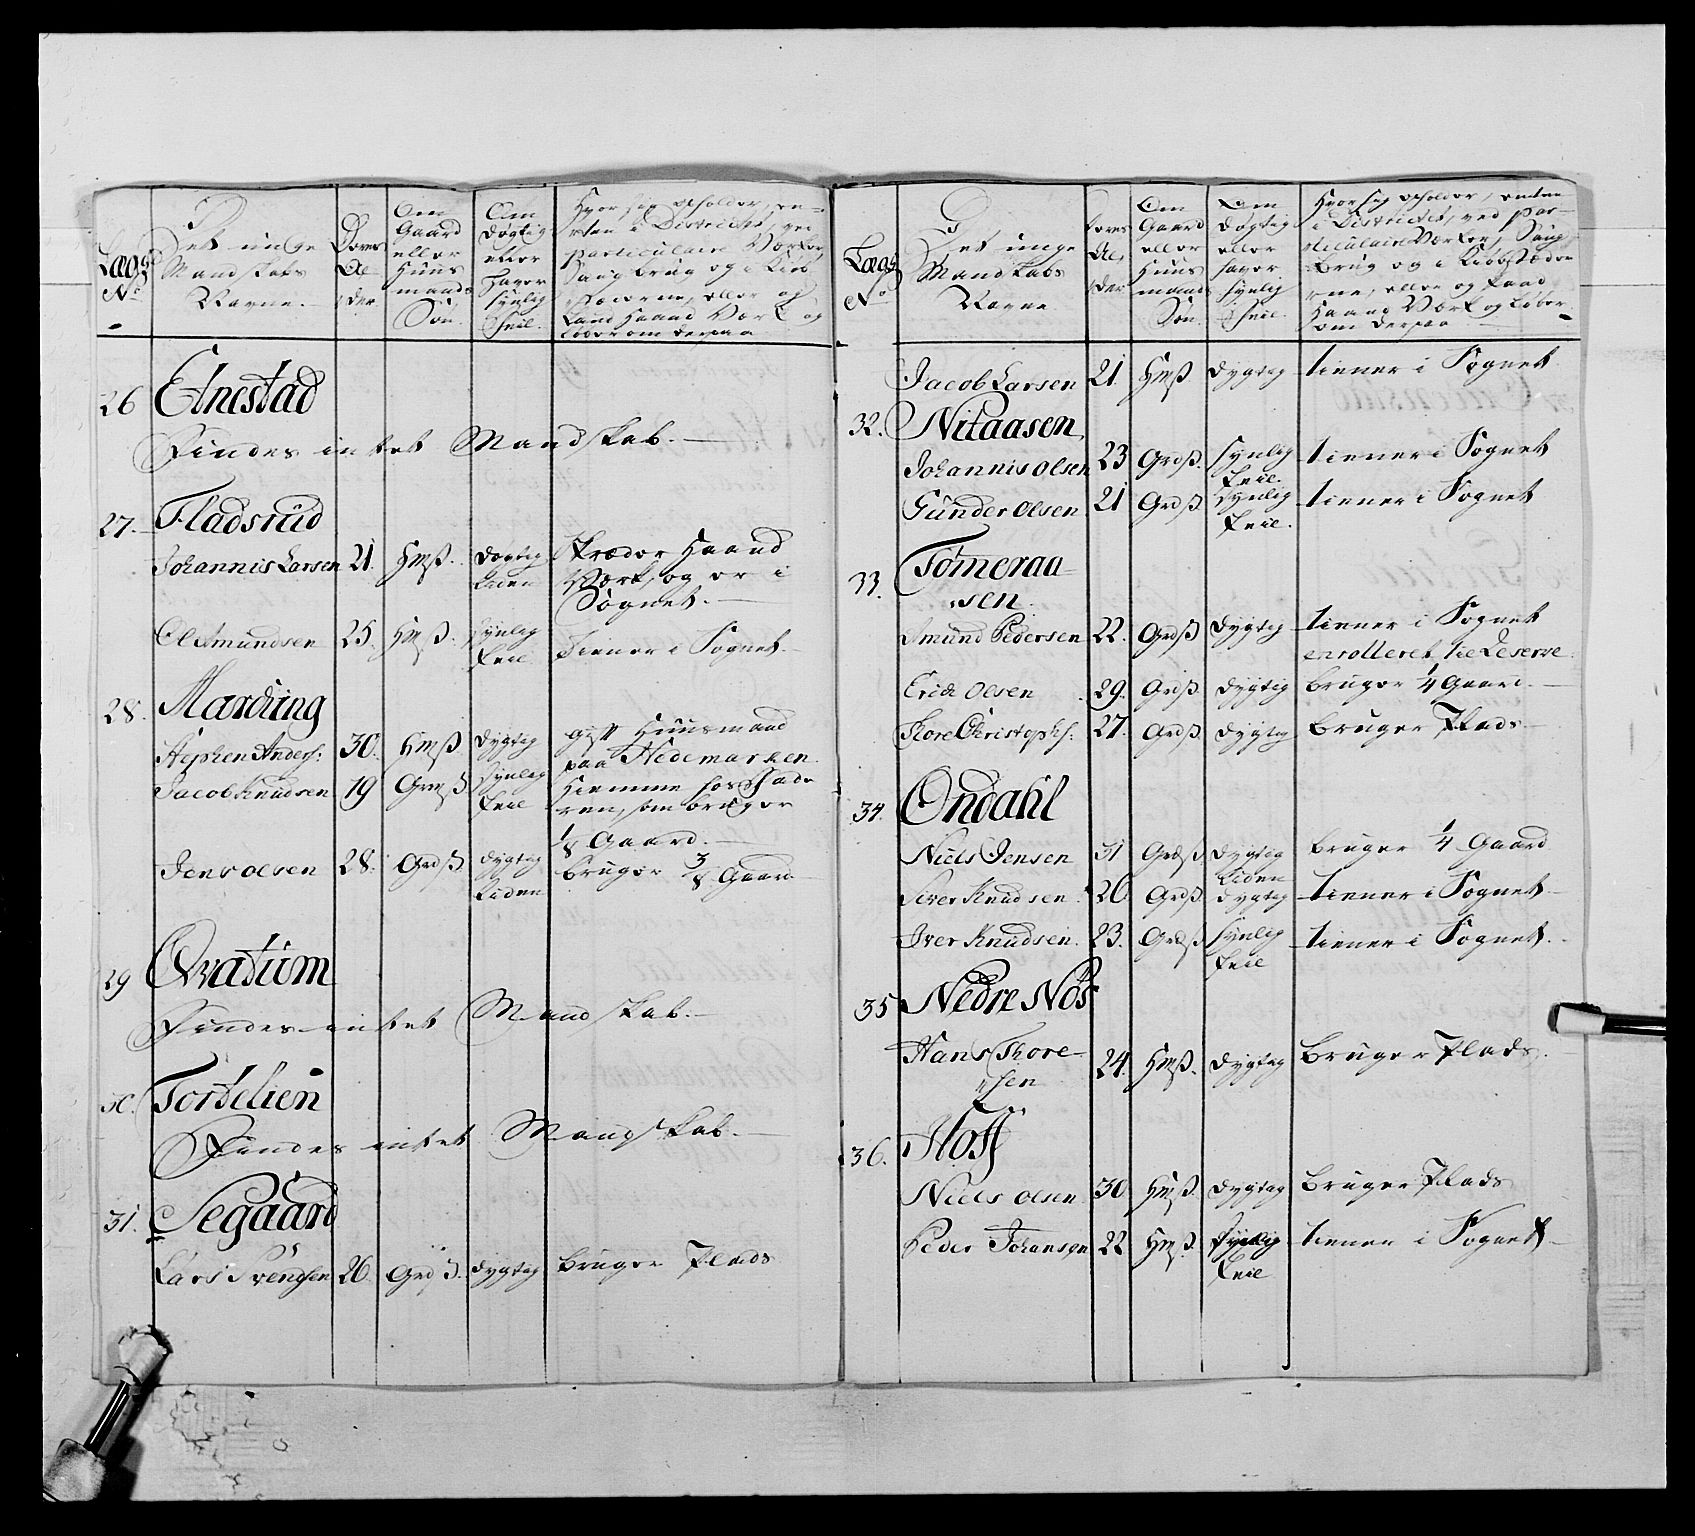 Lægs No
Det unge Mandskabs Navne.
Deres Alder
Om Gaard eller Huusmands Søn.
Om dygtig eller haver synlig Feil.
Hvor sig opholder, enten i Districtet, ved particulaire Værker, Saugbrug og i Kiøbstæderne, eller og
26 Etnestad
Findes intet Mandskab.
27. Fladsrud
Johannis Larsen 21. Hmß. dygtig liden Skræder Haand Værk, og er i Sognet.
Ole Amundsen 25. Hmß. synlig feil tiener i Sognet
28. Narding
Stephen Anders: 30. Hmß dygtig gift Huusmand paa Hedemarken.
Jacob Knudsen 19 Grdß synlig feil hiemme hos Faderen, som bruger 1/8 Gaard.
Jens olsen 28. Grdß dygtig liden bruger 3/8 Gaard
29 Qvatum
Findes intet Mandskab.
30. Tortelien
Findes intet Mandskab.
31. Segaard
Lars Svendsen 26. Grdß. dygtig bruger Plads
Lægs No
Det unge Mandskabs Navne
Deres Alder
Om Gaard eller Huusmands Søn.
Om dygtig eller haver synlig Feil.
Hvor sig opholder, enten i Districtet, ved particulaire Værker, Saugbrug og i Kiøbstæderne, eller og kand Haand Værk og løber om derpaa
Jacob Larsen 21. Hmß dygtig tiener i Sognet
32. Nitaasen
Johannis olsen 23 Grdß. synlig feil. tiener i Sognet
Gunder olsen 21 Grdß synlig feil. tiener i Sognet
33. Tømeraasen.
Amund Pedersen 22. Grdß dygtig tiener i Sognet enrolleret til Reserve
Erich olsen 29. Grdß dygtig bruger 1/4 Gaard.
Thore Christophs: 27. Grdß dygtig bruger Plads
34. Ondahl
Niels Jensen 31 Grdß dygtig liden bruger 1/4 Gaard
Siver Knudsen 26. Grdß. dygtig tiener i Sognet
Iver Knudsen. 23. Grdß synlig feil tiener i Sognet.
35 Nedre Nøs
Hans Thoresen 24. Hmß. dygtig bruger Plads.
36. Hoff
Niels olsen 30 Hmß. dygtig bruger Plads
Peder Johansen 22 Hmß. synlig feil tiener i Sognet